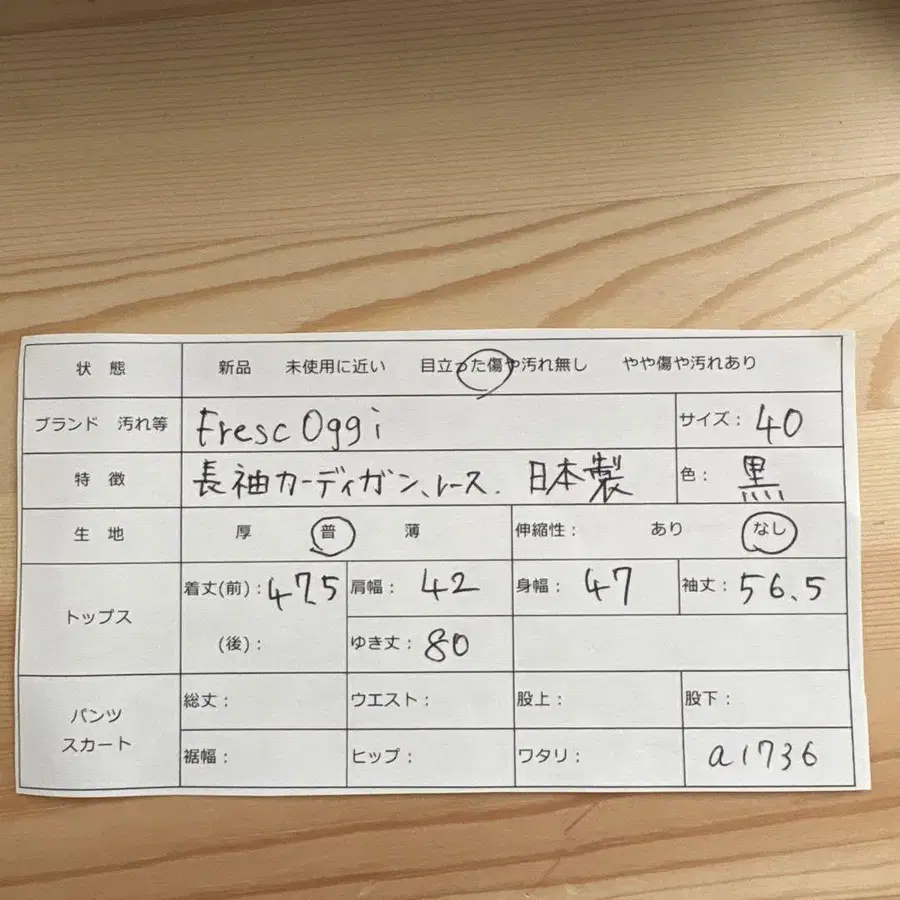 状態 新品 未使用に近い 目立った傷や汚れ無し やや傷や汚れあり
ブランド 汚れ等 Fresc Oggi サイズ: 40
特徴 長袖カーディガン、レース. 日本製 色: 黒
生地 厚 普 薄 伸縮性: あり なし
トップス 着丈(前): 47.5 肩幅: 42 身幅: 47 袖丈: 56.5
(後): ゆき丈: 80
パンツ スカート 総丈: ウエスト: 股上: 股下:
裾幅: ヒップ: ワタリ: a1736